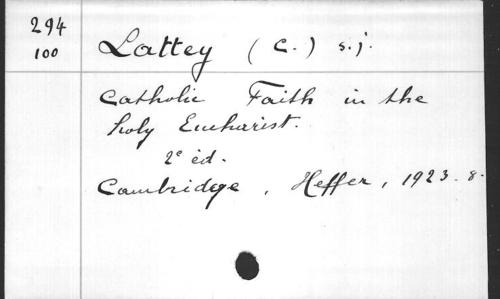 294
100
Lattey (C.) s.j.
Catholic Faith in the
holy Eucharist.
2e éd.
Cambridge, Heffer, 1923. 8.